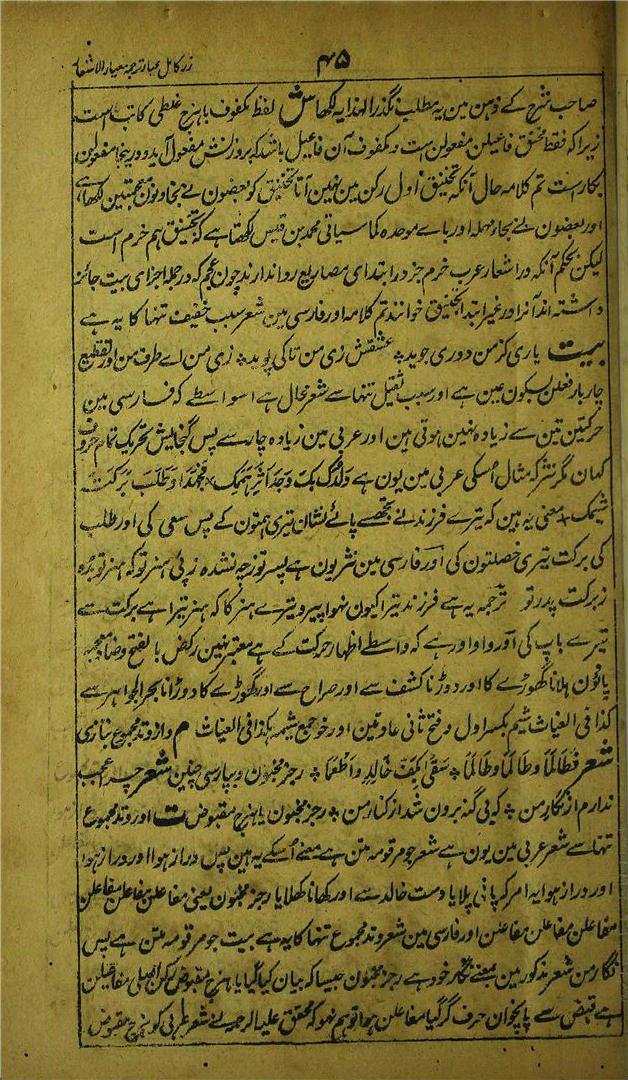 ۴۵
زر کامل عیار ترجمہ معیار الاشعار
صاحب شرح کے ذہن مین یہ مطلب نگذرا لہذا یہ لکھا ش لفظ مکفوف یا ہزج غلطی کاتب است
زیرا کہ فقط مخنق فاعیلن مفعولن ست و مکفوف آن فاعیل باشد کہ بروزنش مفعول آید و درینجا مفعولن
بکار است تم کلامہ حال آنکہ تخنیق اول رکن مین نہین آتا تخنیق کو بعضون نے بخا و نون معجمتین لکھا ہے
اور بعضون نے بحاء مہملہ اور باے موحدہ کما سیاتی محمد بن قیس لکھتا ہے کہ تخنیق ہم خرم است
لیکن بحکم آنکہ در اشعار عرب خرم جز در ابتدای مصاریع روا ندارند چون عجم کہ در جملہ اجزای بیت جائز
داشتہ اند آنرا در غیر ابتدا تخنیق خوانند تم کلامہ اور فارسی مین شعر سبب خفیف تنہا کا یہ ہے
بیت یاری کز من دوری جوید ٭ عشقش زی من تا کی پوید ٭ زی من اے طرف من اور تقطیع
چار بار فعلن بسکون عین ہے اور سبب ثقیل تنہا سے شعر محال ہے اسواسطے کہ فارسی مین
حرکتین تین سے زیادہ نہین ہوتی ہین اور عربی مین زیادہ چار سے پس گنجایش تحریک تمام حروف
کہان مگر نثر کہ مثال اُسکی عربی مین یون ہے وَلَدُکَ بِکَ وَجَدَ اَثَرَ ہِمَمِکَ ٭ فَجَہَدَ وَ طَلَبَ بَرَکَتَ
شِیَمِکَ ٭ معنی یہ ہین کہ تیرے فرزند نے تجھسے پائے نشان تیری ہمتون کے پس سعی کی اور طلب
کی برکت تیری خصلتون کی اور فارسی مین نثر یون ہے پسر تو ز چہ نشدہ ز پی ہنر تو کہ ہنر تو بدہ
ز برکت پدر تو ترجمہ یہ ہے فرزند تیرا کیون نہوا پیرو تیرے ہنر کا کہ ہنر تیرا ہے برکت سے
تیرے باپ کی اور واو اور ہے کہ واسطے اظہار حرکت کے ہے معتبر نہین رکض بالفتح وضاد معجمہ
پانون ہلانا گھوڑے کا اور دوڑنا کشف سے اور صراح سے اور گھوڑے کا دوڑانا بحر الجواہر سے
کذا فی الغیاث شیم بکسر اول و فتح ثانی عادتین اور خو جمع شیمہ ہکذا فی الغیاث م و از وتد مجموع بتازی
شعر فَطَالَمَا وَطَالَمَا وَطَالَمَا ٭ سَقٰی بِکَفِّ خَالِدٍ وَاَطْعَمَا ٭ رجز مخبون و بپارسی چنین شعر چہ عجب
ندارم از نگار من ٭ کہ بی گنہ برون شد از کنار من ٭ رجز مخبون یا ہزج مقبوض ت اور وتد مجموع
تنہا سے شعر عربی مین یون ہے شعر جو مرقومہ متن ہے معنے اُسکے یہ ہین پس دراز ہوا اور دراز ہوا
اور دراز ہوا یہ امر کہ پانی پلایا دست خالد سے اور کھانا کھلایا رجز مخبون یعنی مفاعلن مفاعلن مفاعلن
مفاعلن مفاعلن مفاعلن اور فارسی مین شعر وتد مجموع تنہا کا یہ ہے بیت جو مرقومہ متن ہے پس
نگار من شعر مذکور مین بمعنے خود ہے رجز مخبون جیسا کہ بیان کیا گیا یا ہزج مقبوض کہ رکن اصلی مفاعیلن
ہے قبض سے پانچوان حرف گر گیا مفاعلن ہوا تو ہم نہو کہ محقق علیہ الرحمہ نے شعر عربی کو ہزج مقبوض